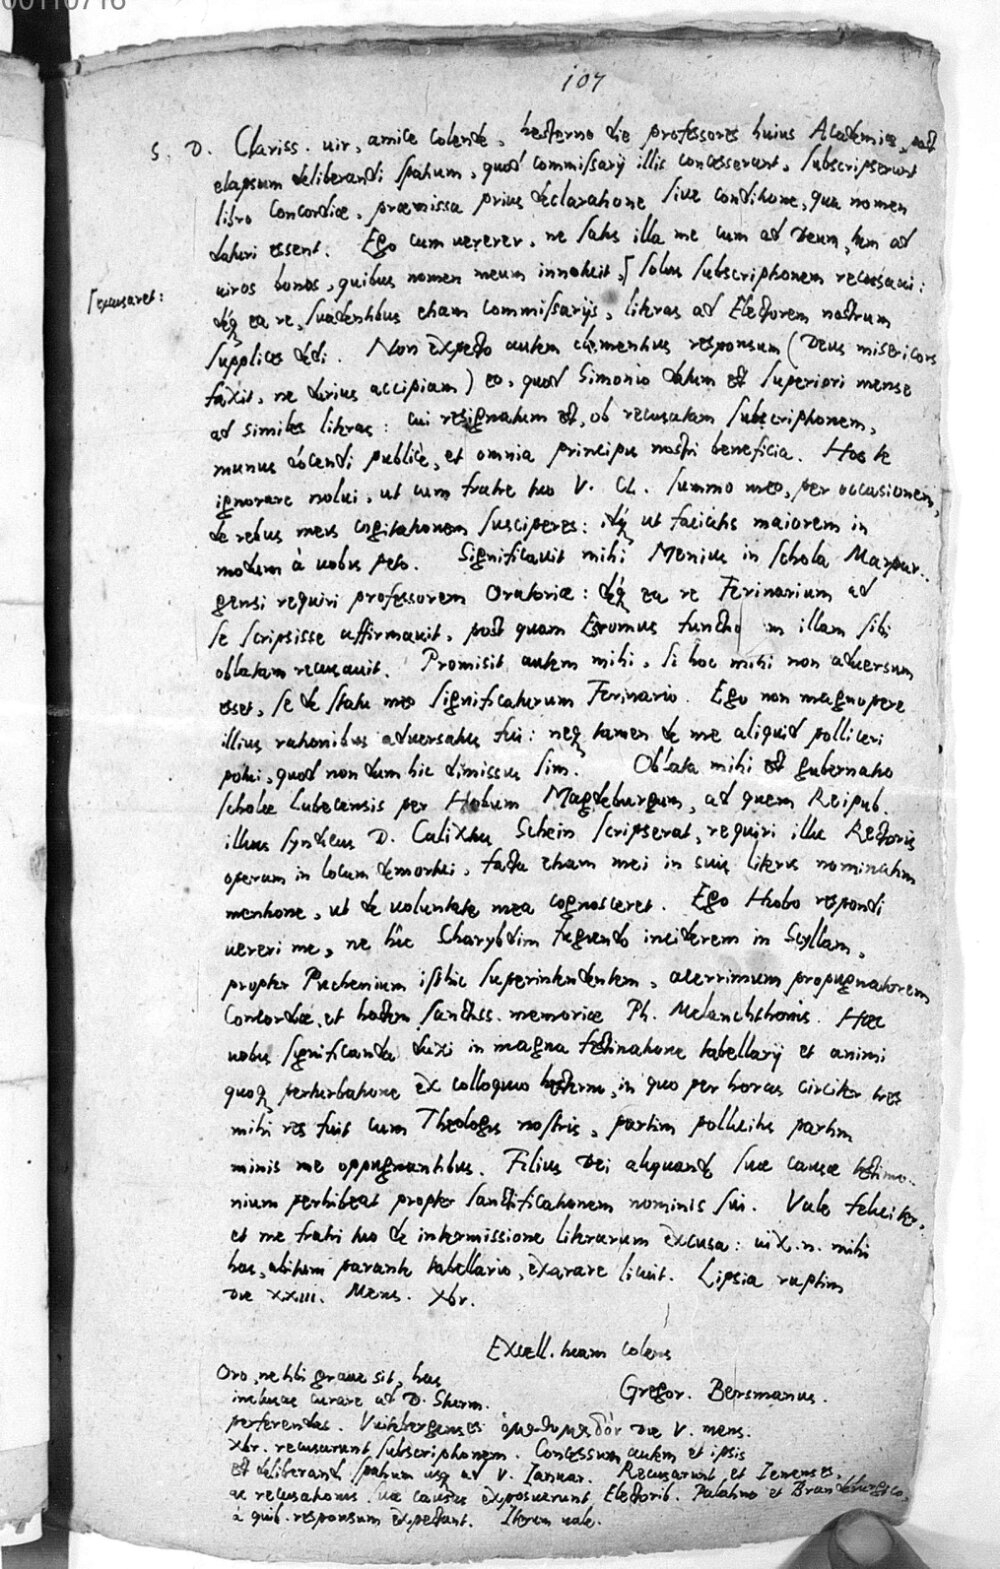 00110716
107
S. D. Clariss. uir, amice colende, hesterno die professores huius Academiæ, post
elapsum deliberandi spatium, quod commissarij illis concesserunt, subscripserunt
libro Concordiæ, præmissa prius declaratione siue conditione, qua nomen
daturi essent. Ego cum uererer, ne satis illa me cum ad Deum, tum ad
uiros bonos, quibus nomen meum innotuit, ⌈ solus subscriptionem recusaui:
⌈excusaret:
deq́ ea re, suadentibus etiam commissarijs, literas ad Electorem nostrum
supplices dedi. Non expecto autem clementius responsum (Deus misericors
faxit, ne durius accipiam) eo, quod Simonio datum est superiori mense
ad similes literas: cui resignatum est, ob recusatam subscriptionem,
munus docendi publicè, et omnia principis nostri beneficia. Hoc te
ignorare nolui, ut cum fratre tuo V. Cl. summo meo, per occasionem,
de rebus meis cogitationem susciperes: idq́ ut faciatis maiorem in
modum à uobis peto. Significauit mihi Monius in schola Marpur-
gensi requiri professorem Oratoriæ: deq́ ea re Ferinarium ad
se scripsisse affirmauit, post quam Esromus functio m illam sibi
oblatam recusauit. Promisit autem mihi, si hoc mihi non aduersum
esset, se de statu meo significaturum Ferinario. Ego non magnopere
illius rationibus aduersatus fui: neq́ tamen de me aliquid polliceri
potui, quod nondum hic dimissus sim. Oblata mihi est gubernatio
scholæ Lubecensis per Hobum Magdeburgum, ad quem Reipub.
illius syndicus D. Calixtus Schein scripserat, requiri illic Rectoris
operam in locum demortui, facta etiam mei in suis literis nominatim
mentione, ut de uoluntate mea cognosceret. Ego Hobo respondi
uereri me, ne hîc Charybdim fugiendo inciderem in Scyllam,
propter Puchenium isthic superintendentem, acerrimum propugnatorem
Concordiæ, et hostem sanctiss. memoriæ Ph. Melanchthonis. Hæc
uobis significanda duxi in magna festinatione tabellarij et animi
quoq́ perturbatione ex colloquio hesterno, in quo per horas circiter tres
mihi res fuit cum Theologis nostris, partim pollicitis partim
minis me oppugnantibus. Filius Dei aliquando suæ causæ testimo-
nium perhibeat propter sanctificationem nominis sui. Vale feliciter,
et me fratri tuo de intermissione literarum excusa: uix .n. mihi
has, abitum parante tabellario, exarare licuit. Lipsia raptim
die XXIII. Mens. Xbr.
Excell. tuam colens
Gregor. Bersmanus.
Oro, ne tibi graue sit, has
inclusas curare ad D. Sturm.
perferendas. Vuitebergenses ὁμοθυμαδόν die V. mens.
Xbr. recusarunt subscriptionem. Concessum autem et ipsis
est deliberandi spatium usq ad V. Ianuar. Recusarunt et Ienenses,
ac recusationis suæ causas exposuerunt Electorib. Palatino et Brandeburgico,
à quib. responsum expectant. Iterum uale.